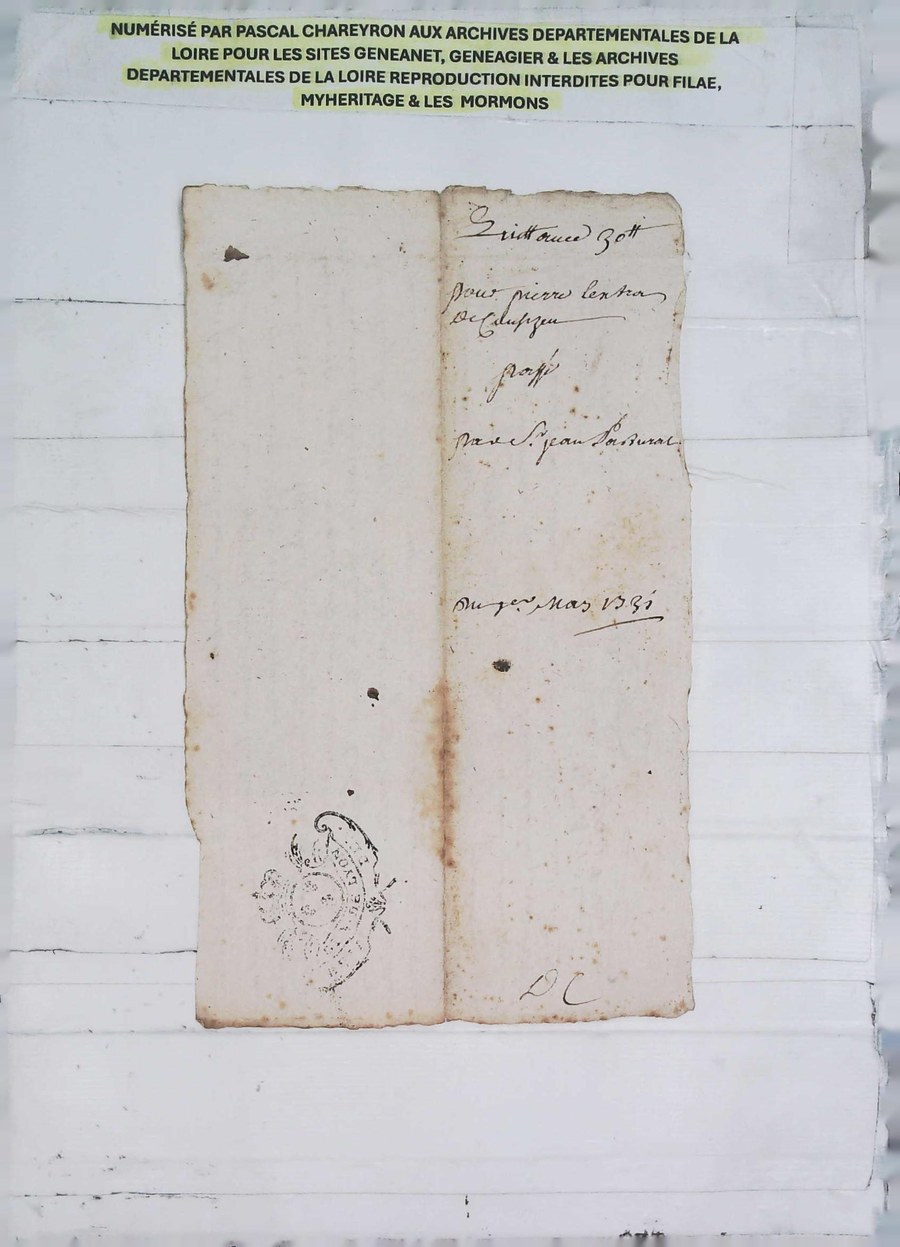 NUMÉRISÉ PAR PASCAL CHAREYRON AUX ARCHIVES DEPARTEMENTALES DE LA
LOIRE POUR LES SITES GENEANET, GENEAGIER & LES ARCHIVES
DEPARTEMENTALES DE LA LOIRE REPRODUCTION INTERDITES POUR FILAE,
MYHERITAGE & LES MORMONS
Quittance 30tt
pour pierre
De
passé
par Sr jean Pastural
Du per Mars 1731
DC
LYON